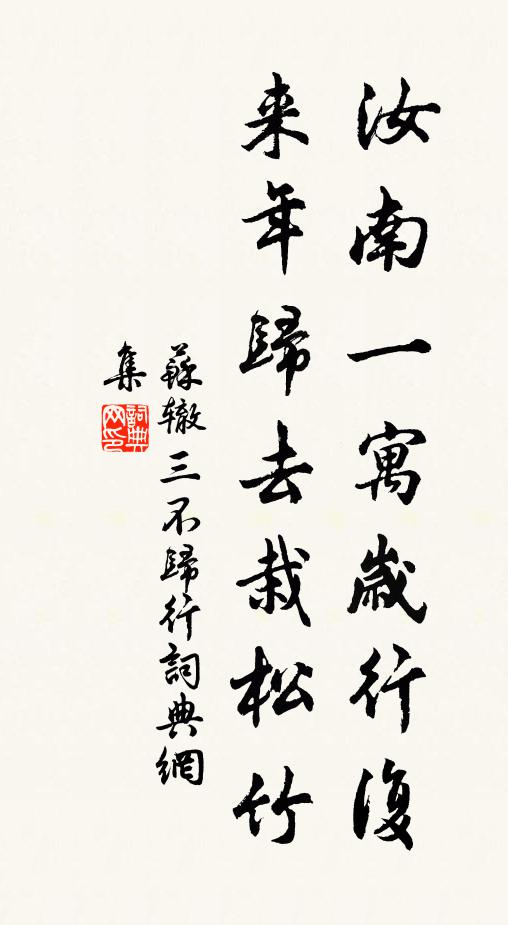 汝南一寓歲行復
来年歸去栽松竹
蘇辙三不歸行詞典網
集
詞典网印